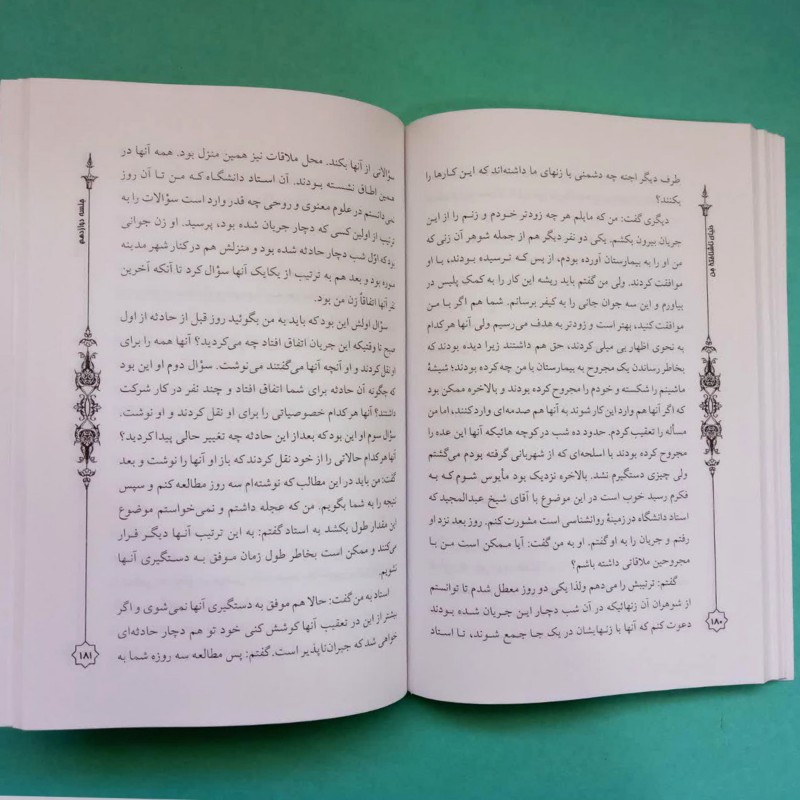 طرف دیگر اجنه چه دشمنی با زنهای ما داشته‌اند که این کارها را
بکنند؟
دیگری گفت: من که مایلم هر چه زودتر خودم و زنم را از این
جریان بیرون بکشم. یکی دو نفر دیگر هم از جمله شوهر آن زنی که
من او را به بیمارستان آورده بودم، از پس که ترسیده بودند، با او
موافقت کردند. ولی من گفتم باید ریشه این کار را به کمک پلیس در
بیاورم و این سه جوان جانی را به کیفر برسانم. شما هم اگر با من
موافقت کنید، بهتر است و زودتر به هدف می‌رسیم ولی آنها هرکدام
به نحوی اظهار بی میلی کردند، حق هم داشتند زیرا دیده بودند که
بخاطر رساندن یک مجروح به بیمارستان با من چه کرده بودند؛ شیشۀ
ماشینم را شکسته و خودم را مجروح کرده بودند و بالاخره ممکن بود
که اگر آنها هم وارد این کار شوند به آنها هم صدمه‌ای وارد کنند، اما من
مسأله را تعقیب کردم. حدود ده شب در کوچه هائیکه آنها این عده را
مجروح کرده بودند با اسلحه‌ای که از شهربانی گرفته بودم می‌گشتم
ولی چیزی دستگیرم نشد. بالاخره نزدیک بود مأیوس شوم که به
فکرم رسید خوب است در این موضوع با آقای شیخ عبدالمجید که
استاد دانشگاه در زمینۀ روانشناسی است مشورت کنم. روز بعد نزد او
رفتم و جریان را به او گفتم. او به من گفت: آیا ممکن است من با
مجروحین ملاقاتی داشته باشم؟
گفتم: ترتیبش را می‌دهم ولذا یکی دو روز معطل شدم تا توانستم
از شوهران آن زنهائیکه در آن شب دچار این جریان شده بودند
دعوت کنم که آنها با زنهایشان در یک جا جمع شوند، تا استاد
دنیای ناشناختۀ من
۱۸۰
سؤالاتی از آنها بکند. محل ملاقات نیز همین منزل بود. همه آنها در
همین اطاق نشسته بودند. آن استاد دانشگاه که من تا آن روز
نمی‌دانستم در علوم معنوی و روحی چه قدر وارد است سؤالات را به
ترتیب از اولین کسی که دچار جریان شده بود، پرسید. او زن جوانی
بود که اوّل شب دچار حادثه شده بود و منزلش هم در کنار شهر مدینه
منوره بود و بعد هم به ترتیب از یکایک آنها سؤال کرد تا آنکه آخرین
نفر آنها اتفاقاً زن من بود.
سؤال اولش این بود که باید به من بگوئید روز قبل از حادثه از اول
صبح تا وقتیکه این جریان اتفاق افتاد چه می‌کردید؟ آنها همه را برای
او نقل کردند و او آنچه آنها می‌گفتند می‌نوشت. سؤال دوم او این بود
که چگونه آن حادثه برای شما اتفاق افتاد و چند نفر در کار شرکت
داشتند؟ آنها هرکدام خصوصیاتی را برای او نقل کردند و او نوشت.
سؤال سوم او این بود که بعد از این حادثه چه تغییر حالی پیدا کردید؟
آنها هرکدام حالاتی را از خود نقل کردند که باز او آنها را نوشت و بعد
گفت: من باید در این مطالب که نوشته‌ام سه روز مطالعه کنم و سپس
نتیجه را به شما بگویم. من که عجله داشتم و نمی‌خواستم موضوع
این مقدار طول بکشد به استاد گفتم: به این ترتیب آنها دیگر فرار
می‌کنند و ممکن است بخاطر طول زمان موفق به دستگیری آنها
نشویم.
استاد به من گفت: حالا هم موفق به دستگیری آنها نمی‌شوی و اگر
بیشتر از این در تعقیب آنها کوشش کنی خود تو هم دچار حادثه‌ای
خواهی شد که جبران‌ناپذیر است. گفتم: پس مطالعه سه روزه شما به
جلسه دوازدهم
۱۸۱